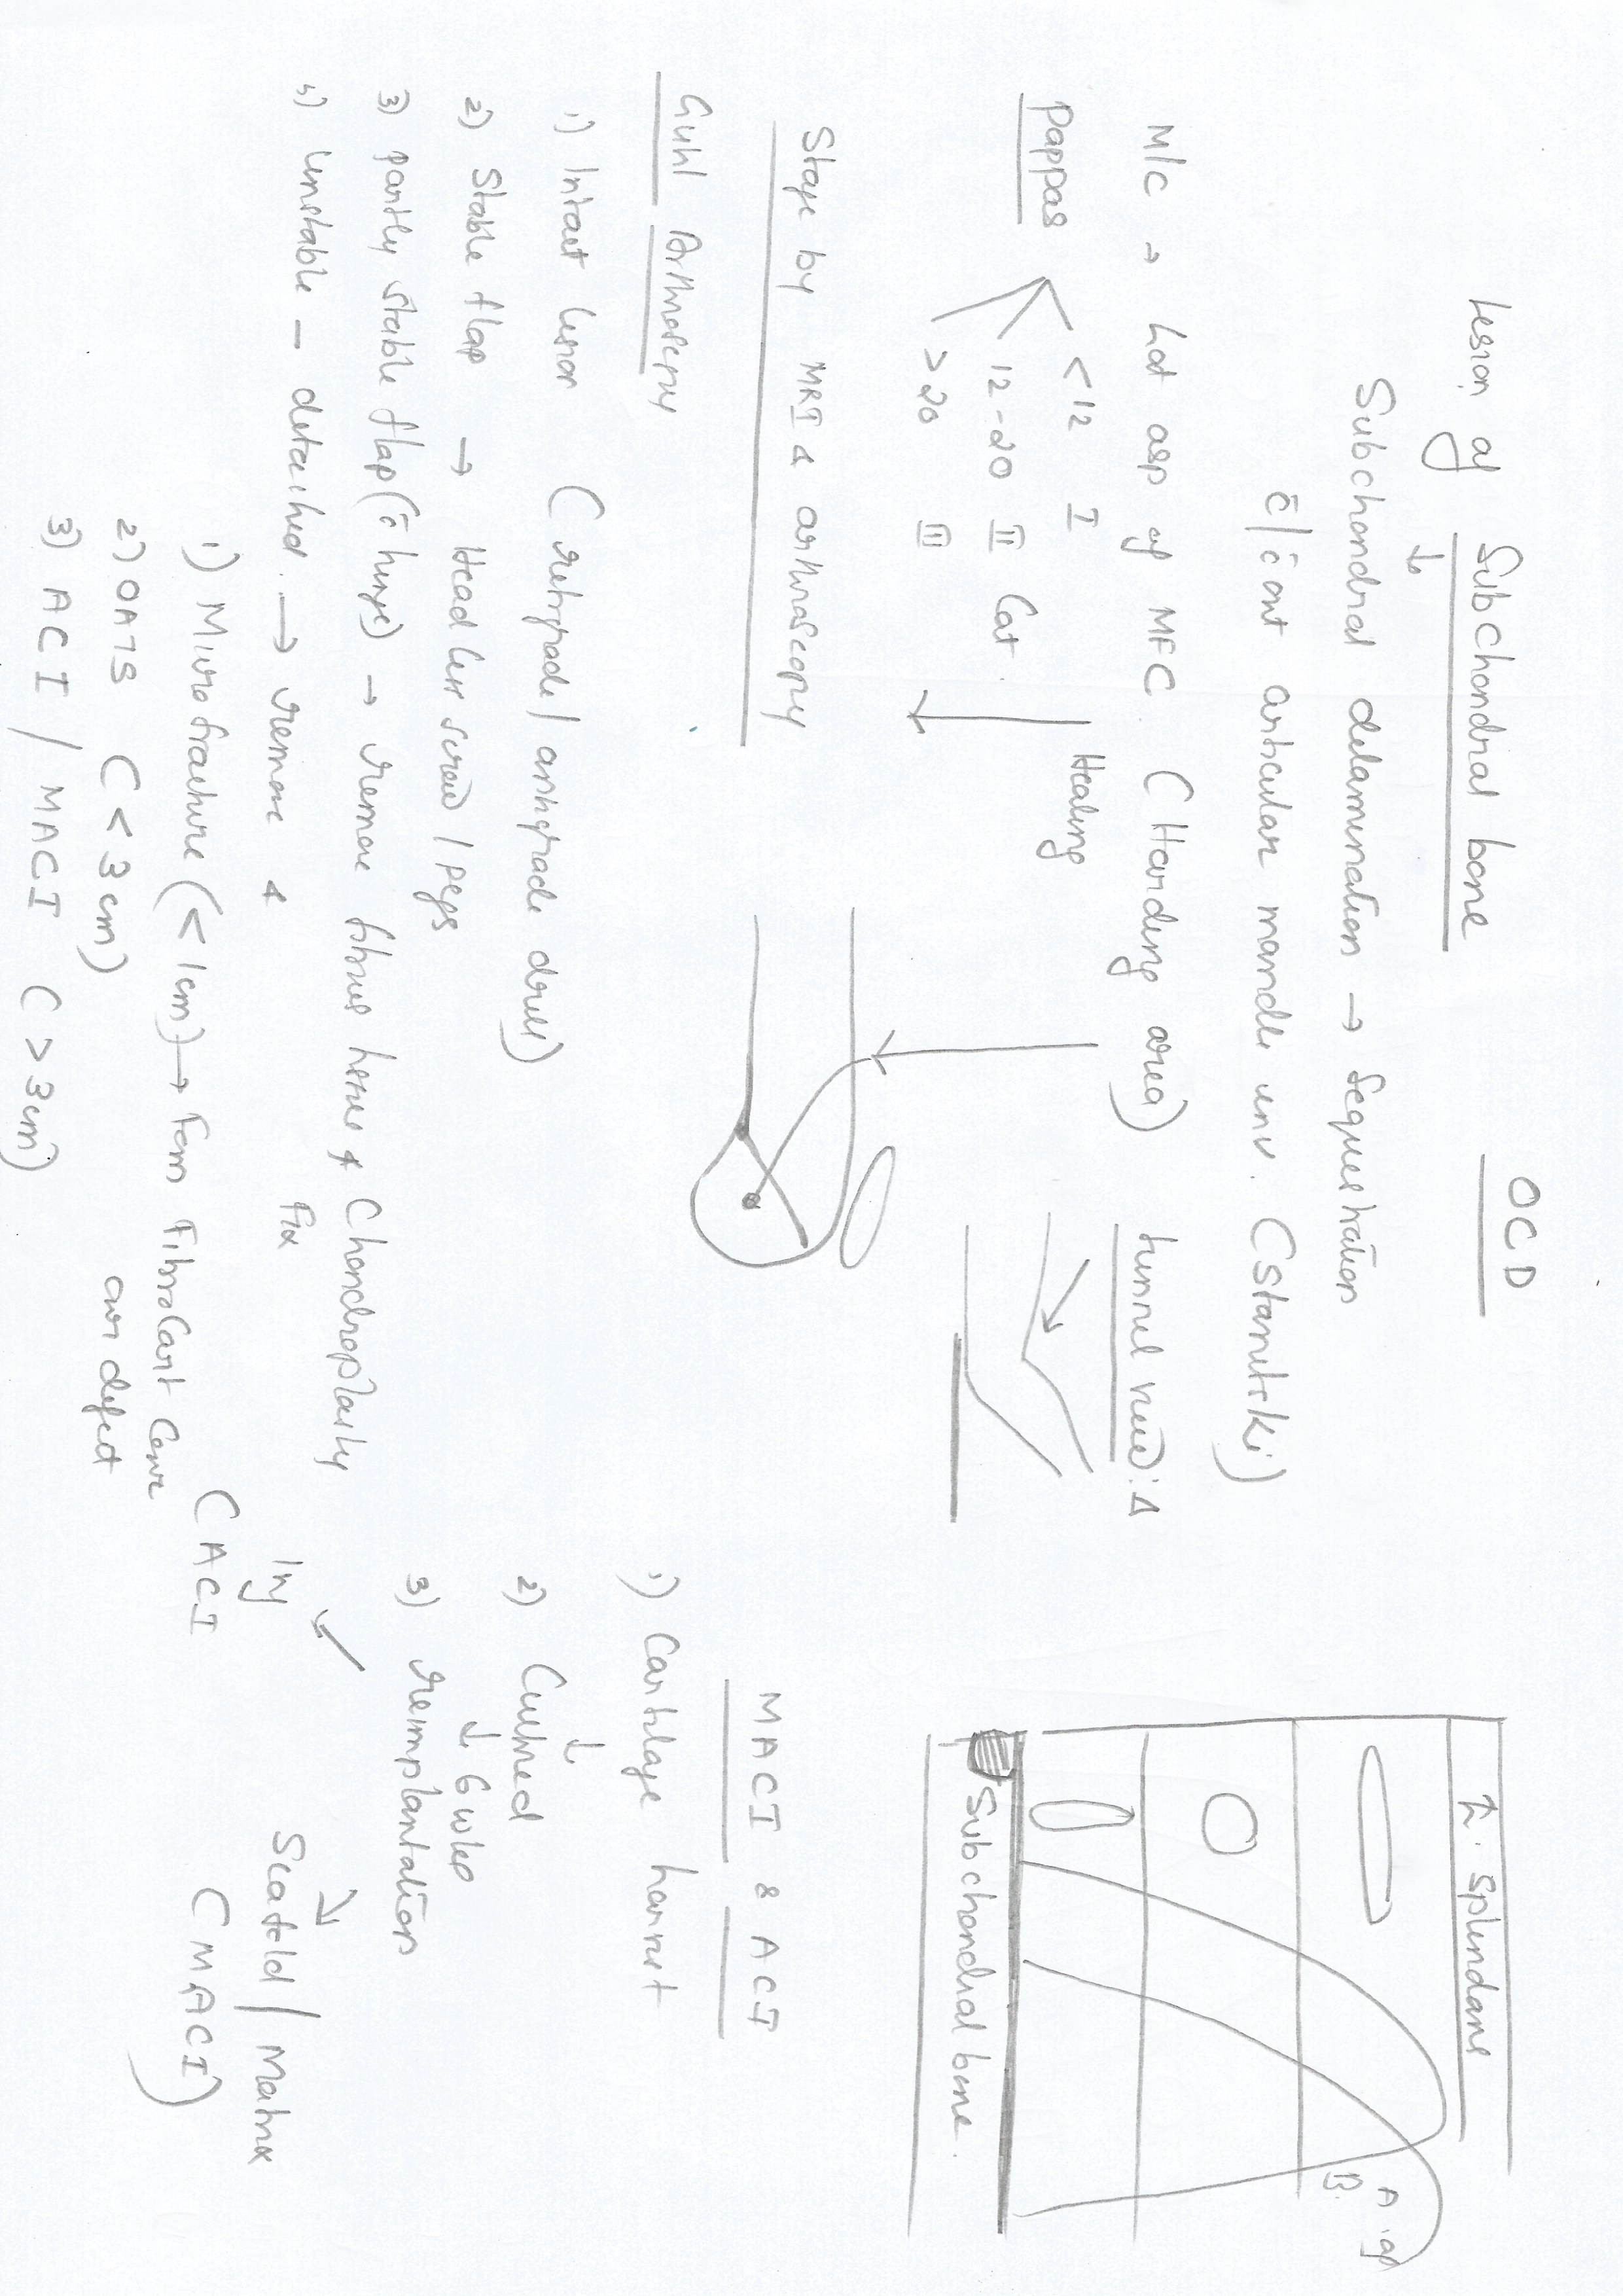 OCD
Lesion of Subchondral bone
↓
Subchondral delamination → Sequestration
c̄/c̄out articular mandle inv. (Stanitski)
M/C → Lat asp of MFC (Harding area)
tunnel view: Δ
Pappas
<12 I
12-20 II Cat
>20 III
Healing
Stage by MRI & arthroscopy
Guhl Arthroscopy
1) Intact lesion (retrograde/antegrade drill)
2) Stable flap → Headless screw / pegs
3) partly stable flap (c̄ hinge) → remove fibrous tissue & Chondroplasty
4) Unstable – detached. → remove & Fix
1) Microfracture (<1cm) → Form FibroCart
over defect
2) OATS (<3cm)
3) ACI / MACI (>3cm)
L. Splendans
A
B
Subchondral bone.
MACI & ACI
1) Cartilage harvest
↓
2) Cultured
↓ 6 wks
3) reimplantation
Inj
(ACI
Scaffold / Matrix
(MACI)